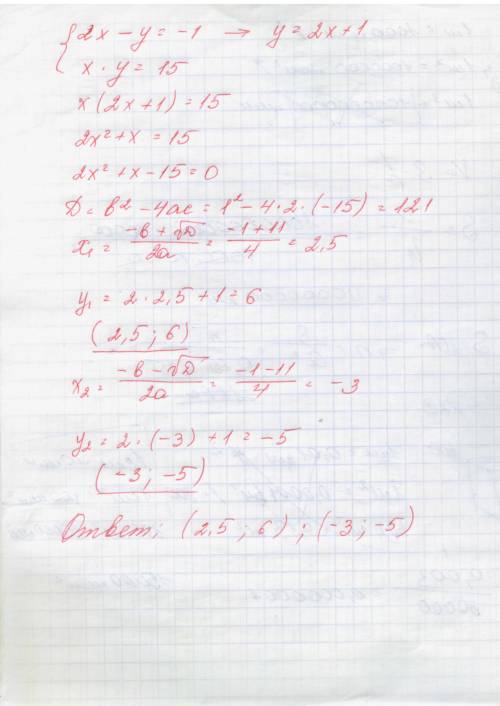 { 2x − y = −1 → y = 2x+1
x · y = 15
x(2x+1) = 15
2x² + x = 15
2x² + x − 15 = 0
D = b² − 4ac = 1² − 4·2·(−15) = 121
x₁ = (−b + √D)/2a = (−1+11)/4 = 2,5
y₁ = 2·2,5 + 1 = 6
(2,5 ; 6)
x₂ = (−b − √D)/2a = (−1−11)/4 = −3
y₂ = 2·(−3) + 1 = −5
(−3; −5)
Ответ: (2,5 ; 6) ; (−3; −5)